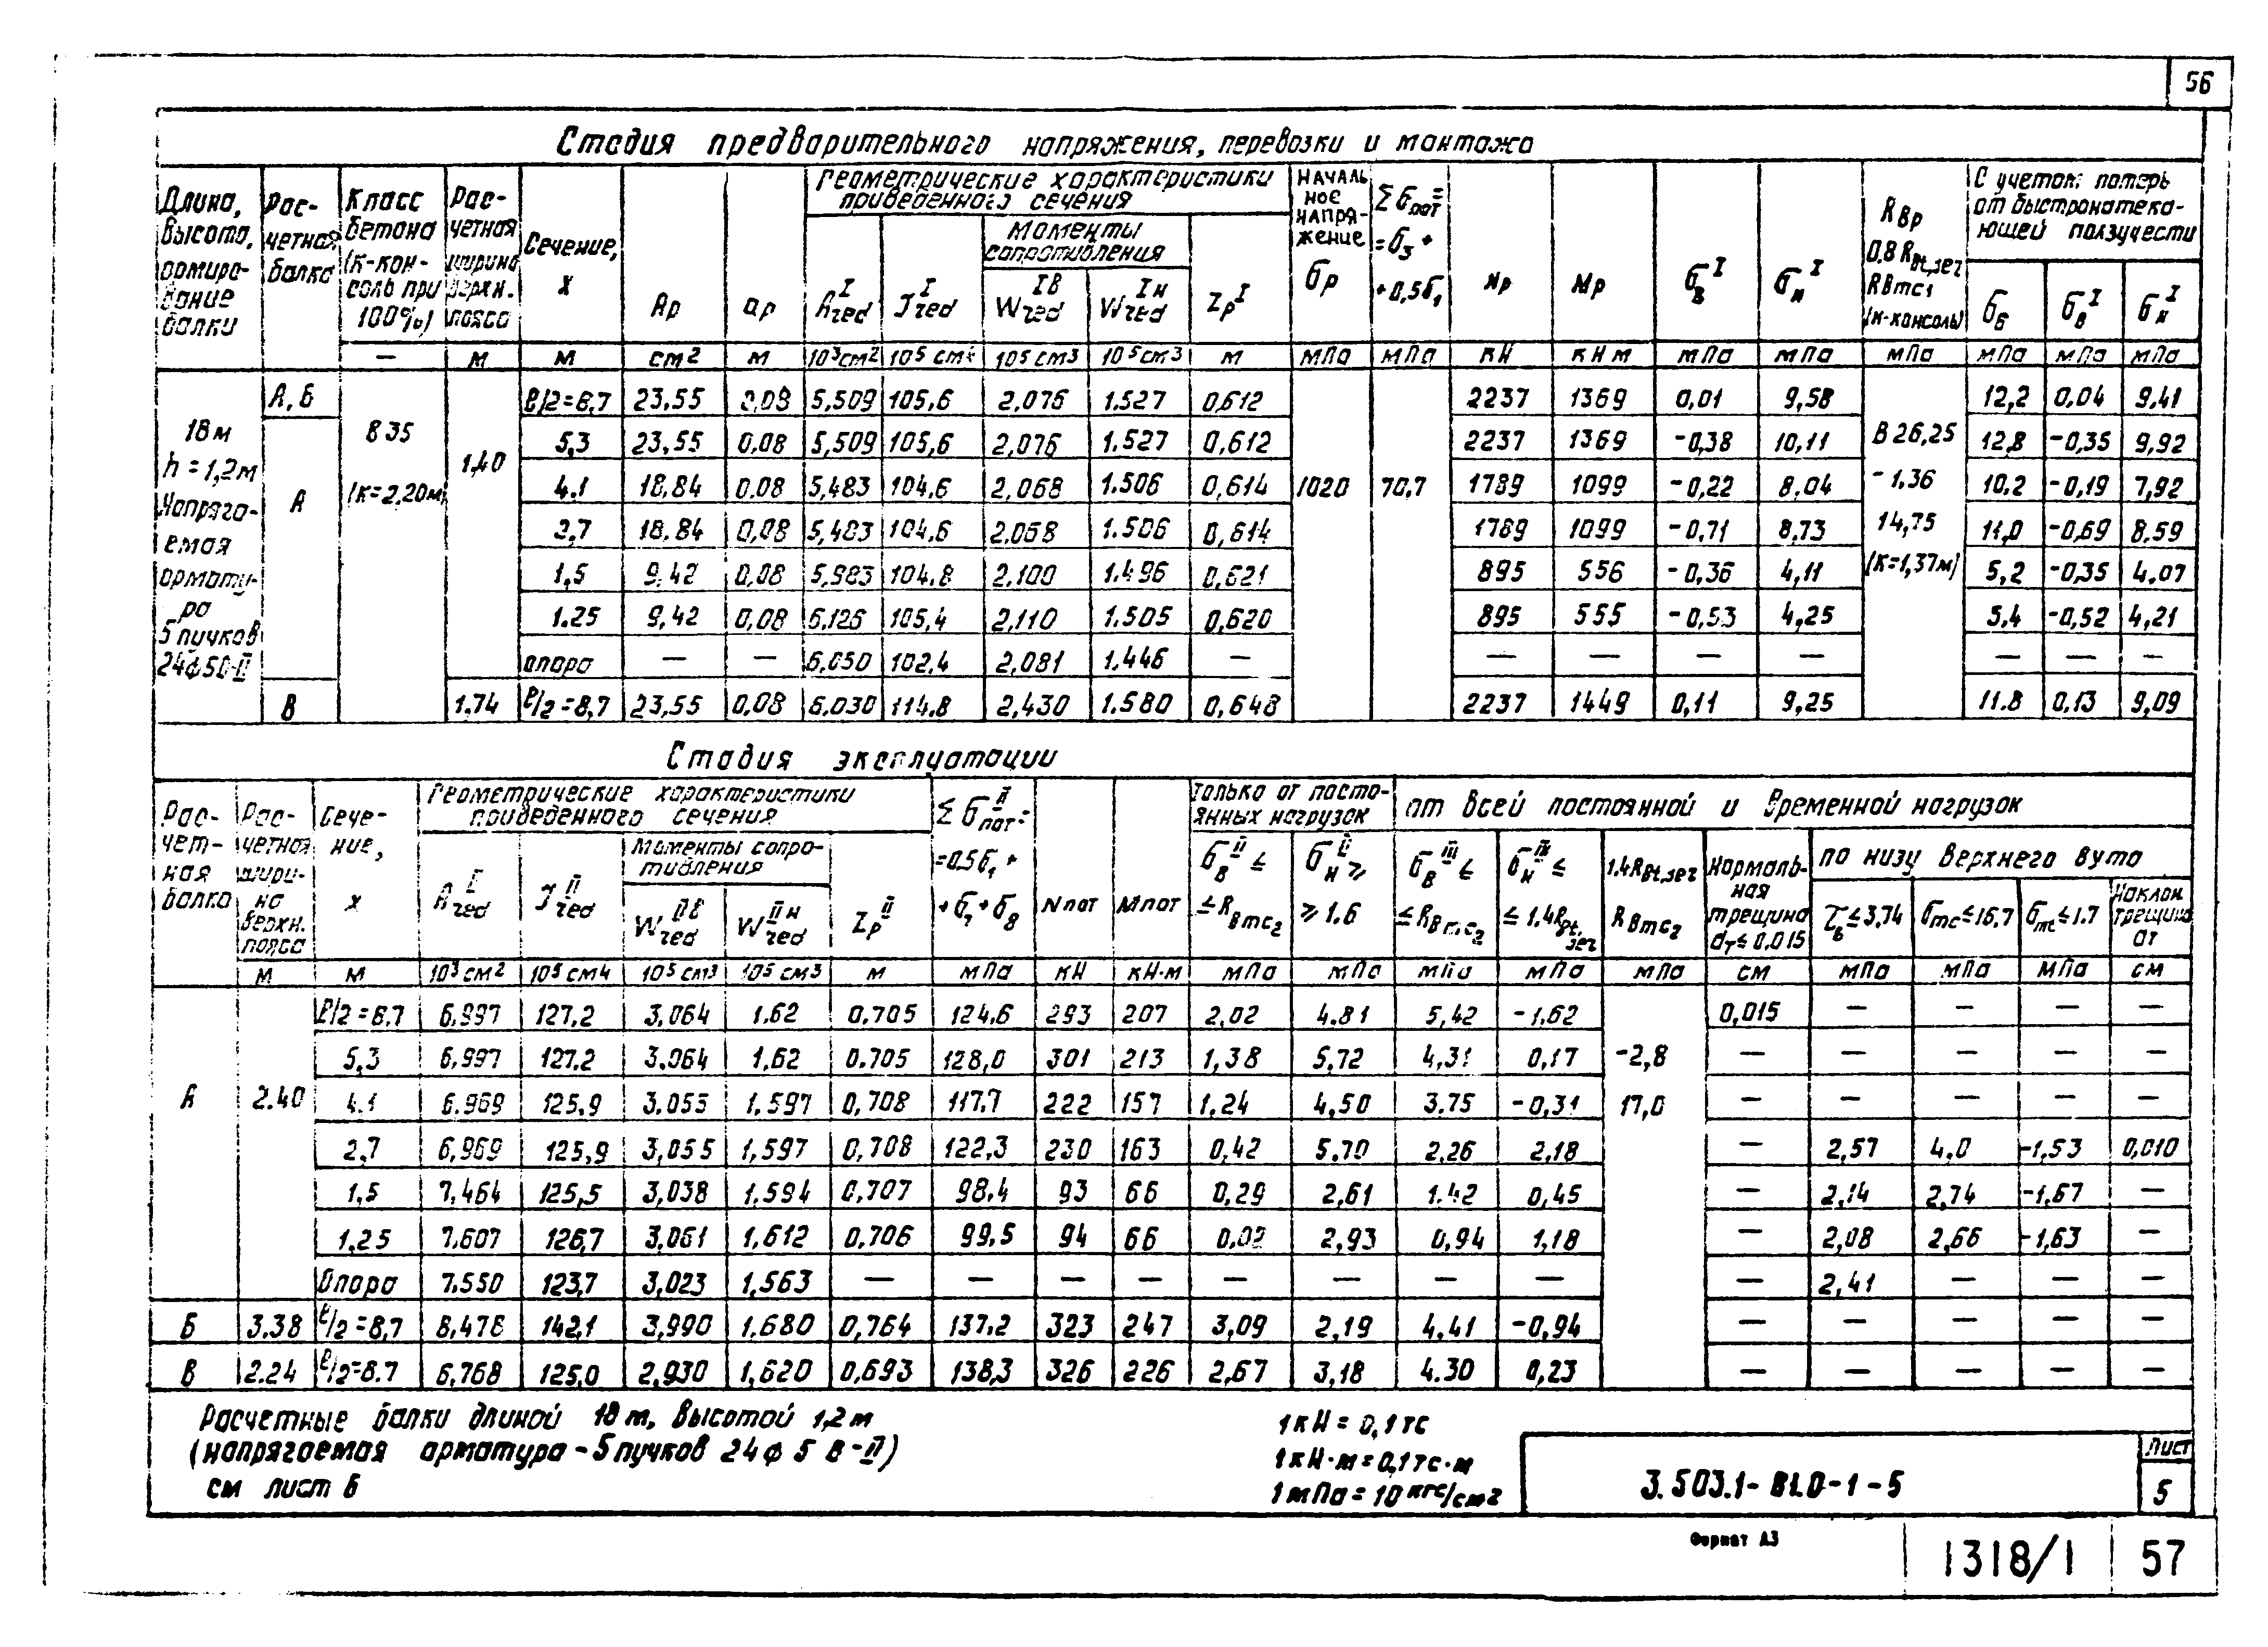 56
Стадия предварительного напряжения, перевозки и монтажа
Длина, высота, армирование балки
Расчетная балка
Класс бетона (к-консоль при 100%)
Расчетная ширина верхн. пояса
Сечение, х
Геометрические характеристики приведенного сечения
Моменты сопротивления
Начальное напряжение σр
Σσпот = σ3 + 0,5σ1
Nр Mр σв^I σн^I
Rвр 0,8Rbt,ser Rвmc1 (к-консоль)
С учетом потерь от быстронатекающей ползучести
Aр aр A^I red J^I red W^Iв red W^Iн red Zр^I
σб σв^I σн^I
— м м см2 м 10³см2 10⁵см4 10⁵см3 10⁵см3 м мПа мПа кН кНм мПа мПа мПа мПа мПа мПа
18м h=1,2м Напрягаемая арматура 5 пучков
В35 (к=2,20м)
1,40
1020 70,7
В26,25 -1,36 14,75 (к=1,37м)
А, Б ℓ/2=8,7 23,55 0,08 5,509 105,6 2,076 1.527 0,612 2237 1369 0,01 9,58 12,2 0,04 9,41
А
5,3 23,55 0,08 5,509 105,6 2,076 1.527 0,612 2237 1369 -0,38 10,11 12,8 -0,35 9,92
4.1 18,84 0.08 5,483 104,6 2,068 1.506 0,614 1789 1099 -0,22 8,04 10,2 -0,19 7,92
2,7 18,84 0,08 5,483 104,6 2,068 1.506 0,614 1789 1099 -0,71 8,73 11,0 -0,69 8,59
1,5 9,42 0,08 5,983 104.8 2,100 1.496 0,621 895 556 -0,36 4,11 5,2 -0,35 4,07
1.25 9,42 0,08 6,126 105,4 2,110 1.505 0,620 895 555 -0,53 4,25 5,4 -0,52 4,21
опора — — 6,050 102,4 2,081 1,446 — — — — — — — —
В 1.74 ℓ/2=8,7 23,55 0,08 6.030 114.8 2,430 1.580 0,648 2237 1449 0,11 9,25 11.8 0,13 9,09
Стадия эксплуатации
Расчетная балка
Расчетная ширина верхн. пояса
Сечение, х
Геометрические характеристики приведенного сечения
Моменты сопротивления
Σσпот^II = 0.5σ1 + σ7 + σ8
Nпот Mпот
только от постоянных нагрузок
от всей постоянной и временной нагрузок
σв^II ≤ Rвmc2
σн^II ≥ 1.6
σв^III ≤ Rвmc2
σн^III ≤ 1.4Rbt,ser
1.4Rbt,ser Rвmc2
Нормальная трещина ат ≤ 0,015
по низу верхнего вута
τб ≤ 3,74 σmc ≤ 16,7 σmt ≤ 1.7
Наклон трещина ат
J^II red W^IIв red W^IIн red Zр^II
м м 10³см2 10⁵см4 10⁵см3 10⁵см3 м мПа кН кН·м мПа мПа мПа мПа мПа см мПа мПа мПа см
А 2.40
-2,8 17,0
ℓ/2=8.7 6.997 127.2 3,064 1.62 0.705 124.6 293 207 2,02 4.81 5,42 -1,62 0,015 — — — —
5,3 6.997 127.2 3,064 1,62 0.705 128,0 301 213 1,38 5.72 4,31 0,17 — — — — —
4.1 6.969 125.9 3.055 1.597 0,708 117.7 222 157 1.24 4,50 3.75 -0,31 — — — — —
2,7 6,969 125,9 3,055 1,597 0,708 122,3 230 163 0,42 5.70 2,26 2,18 — 2,57 4,0 -1,53 0,010
1,5 7,464 125,5 3,038 1.594 0,707 98,4 93 66 0,29 2,61 1.42 0,45 — 2,14 2,74 -1,67 —
1,25 7.607 126,7 3,061 1,612 0,706 99,5 94 66 0,02 2,93 0,94 1,18 — 2,08 2,66 -1,63 —
Опора 7.550 123,7 3,023 1,563 — — — — — — — — — 2,41 — — —
Б 3.38 ℓ/2=8,7 8,478 142,1 3,990 1.680 0,764 137.2 323 247 3,09 2,19 4,41 -0,94 — — — — —
В 2.24 ℓ/2=8.7 6,768 125,0 2,930 1,620 0,693 138,3 326 226 2,67 3,18 4.30 0,23 — — — — —
Расчетные балки длиной 18 м, высотой 1,2 м
(напрягаемая арматура - 5 пучков 24 ф 5 В-II)
см лист 6
1 кН = 0,1 тс
1 кН·м = 0,1 тс·м
1 мПа = 10 кгс/см2
3.503.1-81.0-1-5
Лист
5
Формат А3
1318/1
57